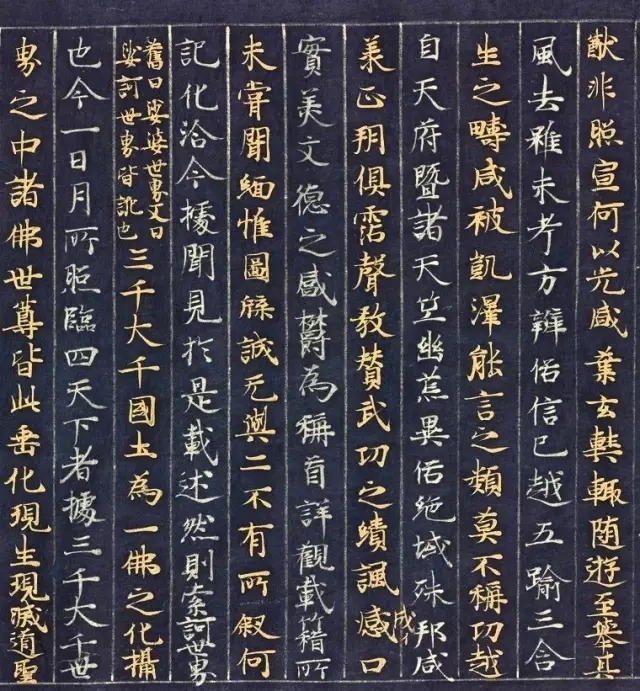 猷非照宣何以光盛葉玄奘輒随遊至舉其
風去雖未考方辯俗信已越五踰三含
生之疇咸被凱澤能言之類莫不稱功越
自天府暨諸天竺幽荒異俗絶域殊邦咸
羕正朔俱霑聲教賛武功之績諷盛口
成イ
實美文德之盛欝為稱首詳觀載籍所
未甞聞緬惟圖牒誠无與二不有所叙何
記化洽今據聞見於是載述然則索訶世界
舊曰娑婆世界又曰
娑訶世界皆訛也
三千大千國土為一佛之化攝
也今一日月所照臨四天下者據三千大千世
界之中諸佛世尊皆此垂化現生現滅道聖